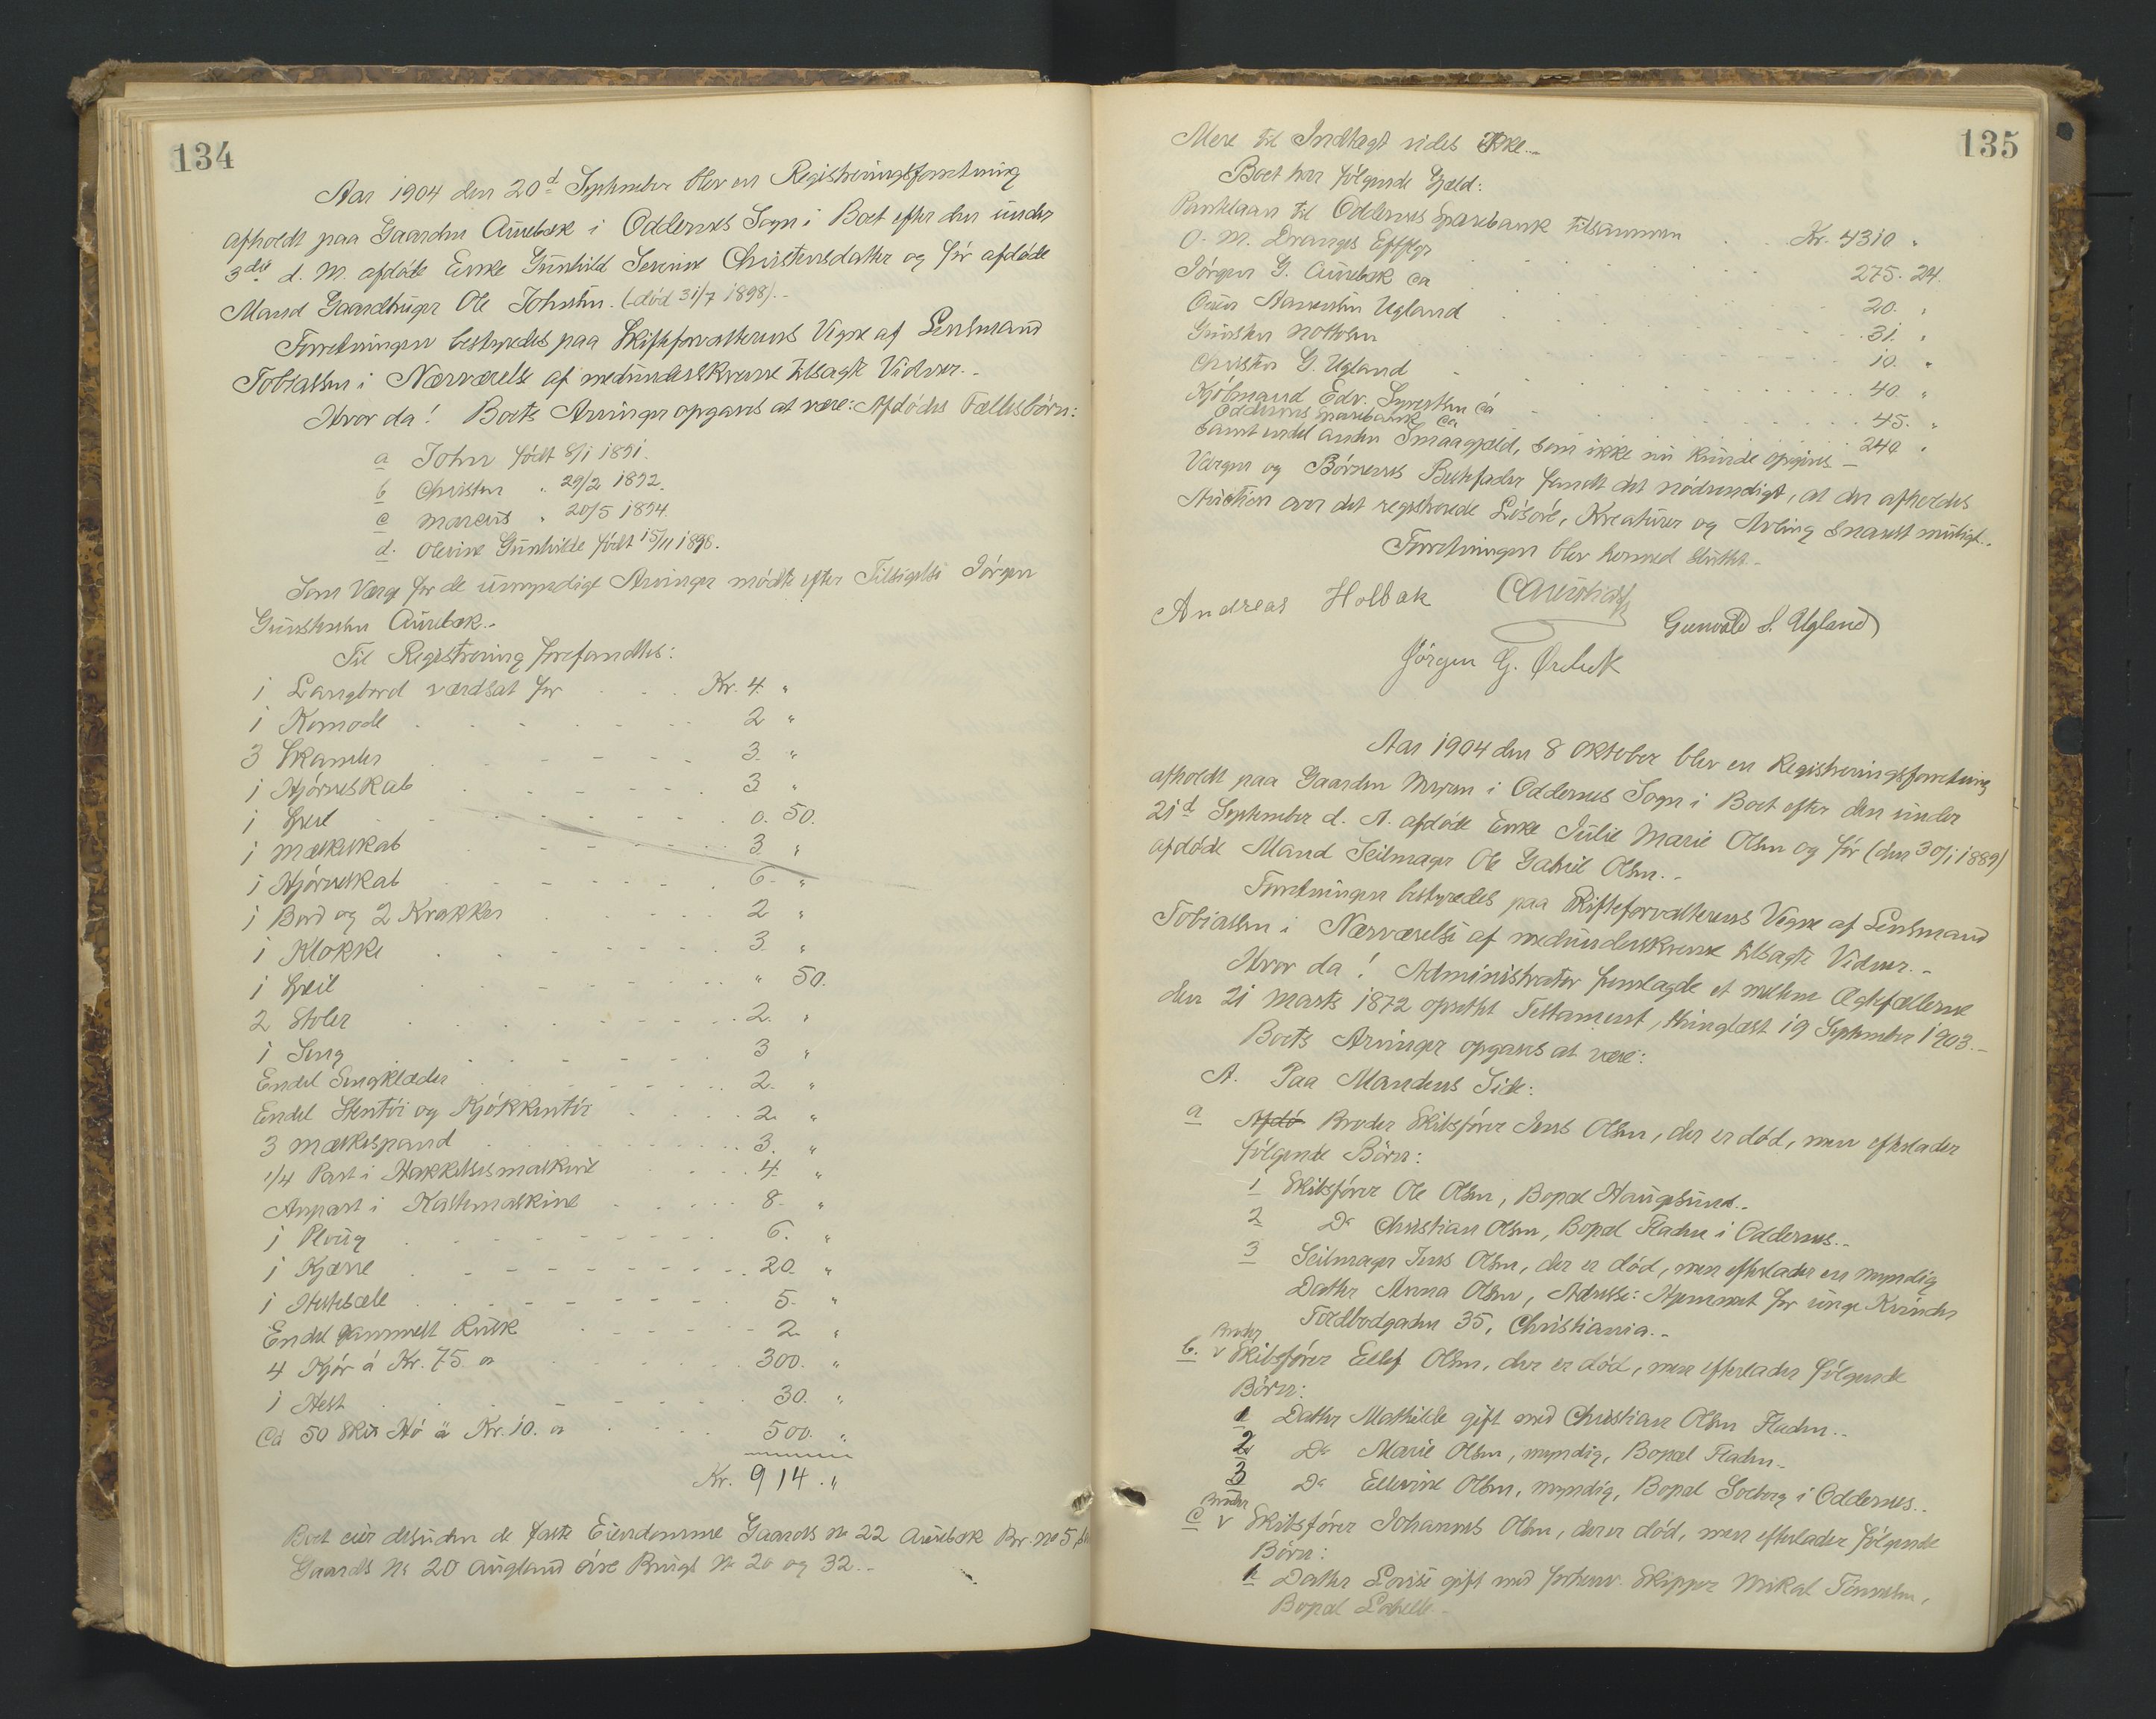 134
Aar 1904 den 20d September blev en Registreringsforretning
afholdt paa Gaarden Aurebæk i Oddernes Sogn i Boet efter den under
3die d. M. afdøde Enke Gunhild Serine Christensdatter og før afdøde
Mand Gaardbruger Ole Johnsen. (død 31/7 1898).-
Forretningen bestyredes paa Skifteforvalterens Vegne af Lensmand
Tobiassen i Nærværelse af medunderskrevne tilsagte Vidner.-
Hvor da! Boets Arvinger opgaves at være: Afdødes Fællesbørn:
a John født 8/1 1891.
b Christen " 29/2 1892.
c Marcus " 20/5 1894.
d. Olevine Gunhilde født 15/11 1898.
Som Værge for de umyndige Arvinger mødte efter Tilsigelse Jørgen
Gunstensen Aurebæk.-
Til Registrering forefandtes:
1 Langbord værdsat for Kr. 4. "
1 Komode 2 "
3 Skamler 3. "
1 Hjørneskab 3 "
1 Speil 0. 50.
1 Mælkeskab 3. "
1 Hjørneskab 6. "
1 Bord og 2 Krakker 2 "
1 Klokke 3. "
1 Speil " 50.
2 Stoler 2. "
1 Seng 3 "
Endel Sengklæder 2. "
Endel Stentøi og Kjøkkentøi 2. "
3 Mælkespand 3. "
1/4 Part i Hakkelsesmaskine 4. "
Anpart i Kastemaskine 8. "
1 Ploug 6. "
1 Kjærre 20. "
1 Hestesæle 5. "
Endel gammelt Rusk 2. "
4 Kjør á Kr. 75. 00 300. "
1 Hest 30. "
Ca 50 Skit Hø á Kr. 10. 00 500. "
Kr. 914. "
Boet eier desuden de faste Eiendomme Gaards No 22 Aurebæk Br. No 5,
Gaards No 20 Augland øvre Brugs No 20 og 32.-
135
Mere til Indtægt vides ikke.-
Boet har følgende Gjæld:
Pantelaan til Oddernes Sparebank tilsammen Kr. 4310 "
O. M. Dranges Efflgr 275. 24.
Jørgen G. Aurebæk ca 20. "
Ouen Aanensen Ugland 31. "
Gunsten 10. "
Christen G. Ugland 40. "
Kjøbmand Edv. Syvertsen ca 45. "
Oddernes Sparebank ca 240 "
samt endel anden Smaagjæld, som ikke nu kunde opgives -
Værgen og Børnenes Bestefader fandt det nødvendigt, at der afholdes
Auction over det registrerede Løsøre, Kreaturer og Avling snarest muligt.-
Forretningen blev hermed sluttet.-
Andreas Holbæk Gunvald S. Ugland
Jørgen G.Ørebek
Aar 1904 den 8 Oktober blev en Registreringsforretning
afholdt paa Gaarden Myren i Oddernes Sogn i Boet efter den under
21d September d. A. afdøde Enke Julie Marie Olsen og før (den 30/1 1889)
afdøde Mand Seilmager Ole Gabriel Olsen.-
Forretningen bestyredes paa Skifteforvalterens Vegne af Lensmand
Tobiassen i Nærværelse af medunderskrevne tilsagte Vidner.-
Hvor da! Administrator fremlagde et mellem Ægtefællerne
den 21 Marts 1872 oprettet Testament, thinglæst 19 September 1903.-
Boets Arvinger opgaves at være:
A. Paa Mandens Side:
a Afdø Broder Skibsfører Jens Olsen, der er død, men efterlader
følgende Børn:
1 Skibsfører Ole Olsen, Bopæl Haugesund.-
2 Do Christian Olsen, Bopæl Fladen i Oddernes.-
3 Seilmager Jens Olsen, der er død, men efterlader en myndig
Datter Anna Olsen, Adresse: Hjemmet for unge Kvinder
Toldbodgaden 35, Christiania.-
Broder
b. v Skibsfører Ellef Olsen, der er død, men efterlader følgende
Børn:
1 Datter Mathilde gift med Christian Olsen Fladen.-
2 Do Marie Olsen, myndig, Bopæl Fladen.-
3 Do Ellevine Olsen, myndig, Bopæl Solborg i Oddernes.-
Broder
c v Skibsfører Johannes Olsen, der er død, men efterlader følgende
Børn:
1 Datter Lovise gift med forhenv. Skipper Mikal Tønnesen,
Bopæl